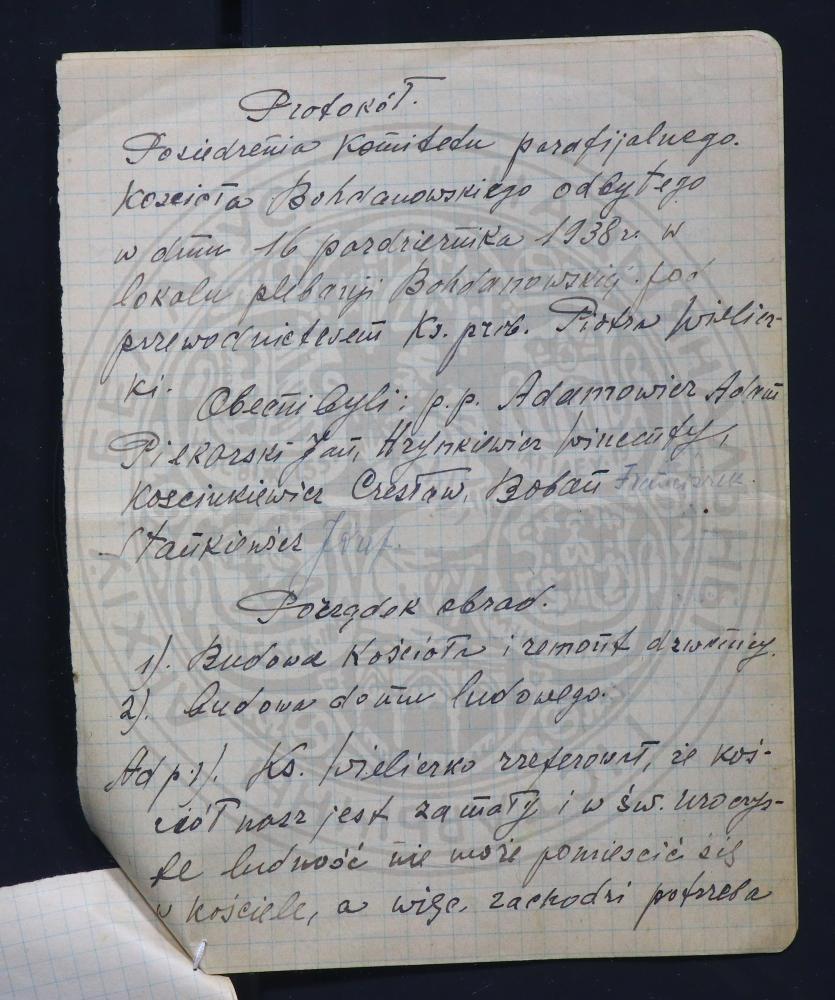 Protokół.
Posiedzenia Komitetu parafijalnego.
Kościoła Bohdanowskiego odbytego
w dniu 16 pazdziernika 1938 r. w
lokalu plebanji Bohdanowskiej pod
przewodnictwem Ks. prob. Piotra Wielicz-
ki.
Obecni byli: p.p. Adamowicz Adam
Piekarski Jan, Hrynkiewicz Wincenty,
Kościukiewicz Czesław, Boban Franciszek
Stankiewicz Józef.
Porządek obrad.
1). Budowa Kościoła i remont dzwonnicy.
2). budowa domu ludowego.
Ad p. 1). Ks. Wieliczko zreferował, że koś-
ciół nasz jest zamały i w św. uroczys-
te ludność nie może pomieścić się
w kościele, a więc, zachodzi potrzeba